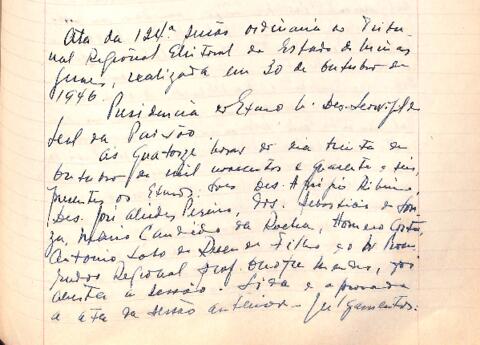 Ata da 124ª sessão ordinaria do Tribu-
nal Regional Eleitoral do Estado de Minas
Geraes, realizada em 30 de outubro de
1946.
Presidencia do Exmo Sr. Des. Leovigildo
Leal da Paixão.
As quatorze horas do dia trinta de
outubro de mil novecentos e quarenta e seis,
presentes os Exmos. Snrs. Des. Aprigio Ribeiro,
Des. José Alcides Pereira, Drs. Sebastião de Sou-
za, Mario Candido da Rocha, Homero Costa,
Antonio Lobo de Resende Filho e o Dr Procu-
rador Regional Prof. Onofre Mendes, foi
aberta a sessão. Lida e aprovada
a ata da sessão anterior. - Julgamentos: